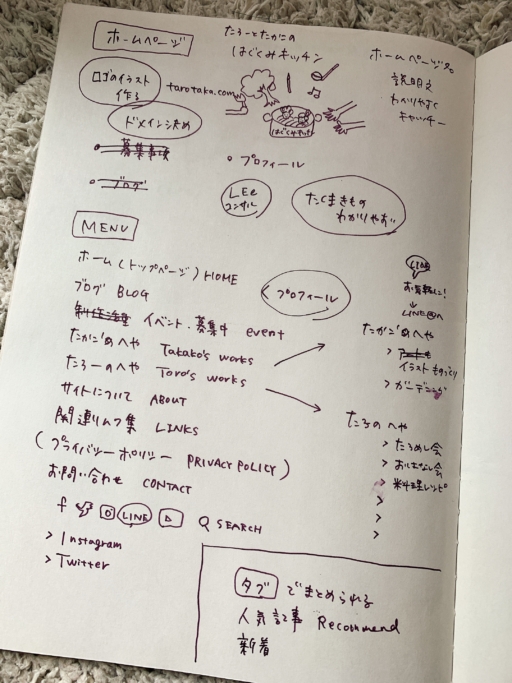 ホームページ
たろーとたかこの
はぐくみキッチン
ホームページ名
説明文
わかりやすく
キャッチー
ロゴのイラスト
作る
tarotaka.com
ドメイン決め
はぐくみキッチン
募集事項
ブログ
プロフィール
LEe
コンサル
たくまきもの
わかりやすい
MENU
ホーム (トップページ) HOME
ブログ BLOG
イベント・募集中 event
たかこ"のへや Takako's works
たろーのへや Taro's works
サイトについて ABOUT
関連リンク集 LINKS
(プライバシーポリシー PRIVACY POLICY)
お問い合わせ CONTACT
f LINE SEARCH
> Instagram
> Twitter
<プロフィール
LINE
お気軽に!
→ LINE@へ
たかこ"のへや
> アート
イラスト ものづくり
> ガーデニング
たろのへや
> たろめし会
> おはなし会
> 料理レシピ
>
>
>
タグ でまとめられる
人気記事 Recommend
新着